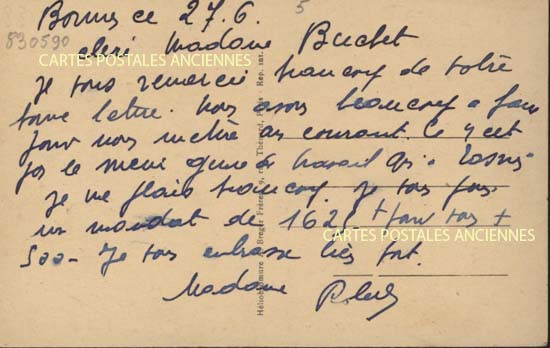 Bormes ce 27.6. 5
830590
chère Madame Buchet
CARTES POSTALES ANCIENNES
Je vous remercie beaucoup de votre
bonne lettre. Nous avons beaucoup a faire
pour nous mettre au courant. Ce n'est
pas le meme genre de travail qu'a
Je me plais beaucoup. Je vous fais
un mandat de 162 + pour vos +
CARTES POSTALES ANCIENNES
500 - Je vous embrasse très fort.
Madame
Héliogravure de Breger Frères, 9, rue Thénard, Paris Rep. int.